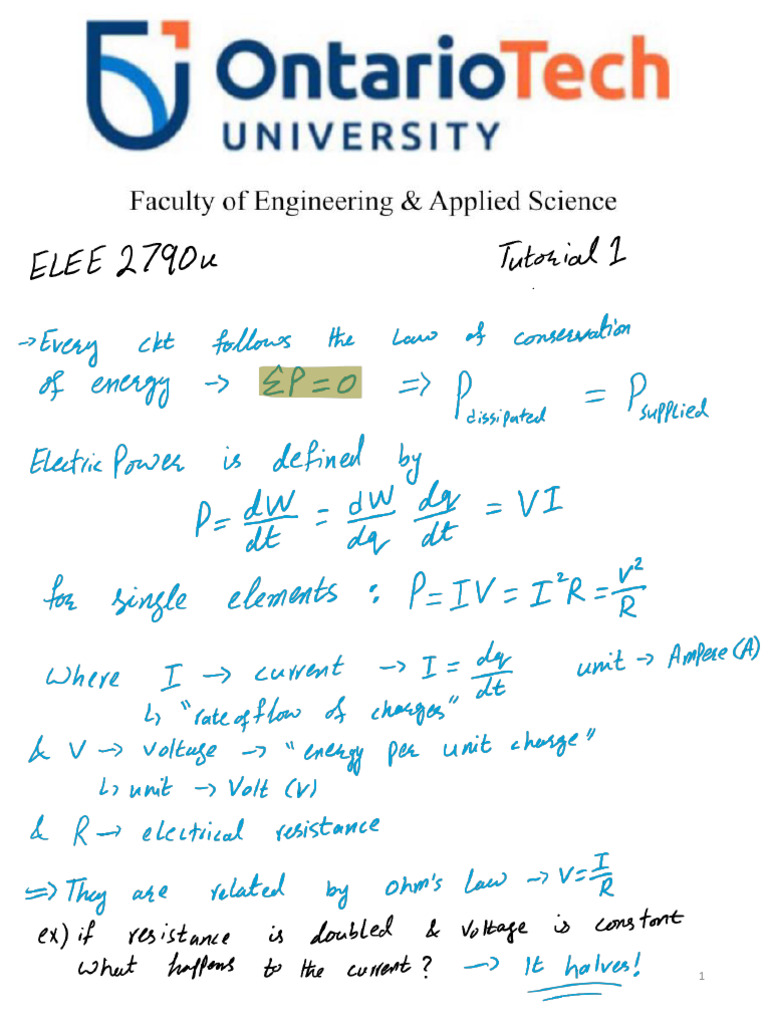 OntarioTech
UNIVERSITY
Faculty of Engineering & Applied Science
ELEE 2790u Tutorial 1
→ Every ckt follows the law of conservation
of energy → ΣP = 0 => P dissipated = P supplied
Electric Power is defined by
P = dW/dt = dW/dq dq/dt = VI
for single elements : P = IV = I²R = V²/R
where I → current → I = dq/dt unit → Ampere (A)
↳ "rate of flow of charges"
& V → voltage → "energy per unit charge"
↳ unit → Volt (V)
& R → electrical resistance
=> They are related by ohm's law → V = I/R
ex) if resistance is doubled & voltage is constant
what happens to the current? → It halves!
1